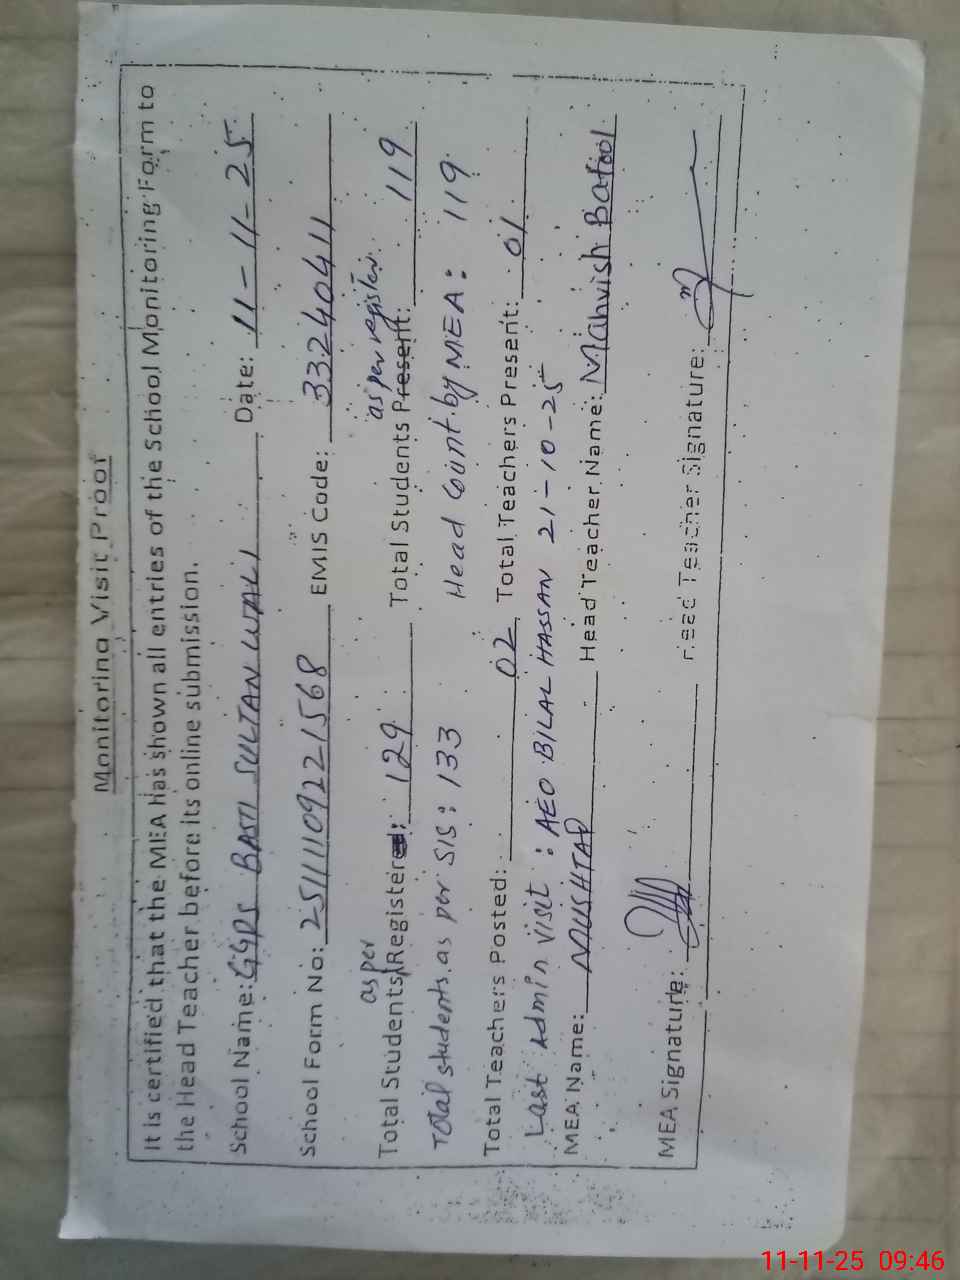 Monitoring Visit Proof
It is certified that the MEA has shown all entries of the School Monitoring Form to
the Head Teacher before its online submission.
School Name: GGPS BASTI SULTAN WALI Date: 11-11-25
School Form No: 2511110922 1568 EMIS Code: 33240411
as per as per register
Total Students Registered: 129 Total Students Present: 119
Total students as per SIS: 133 Head Count by MEA: 119
Total Teachers Posted: 02 Total Teachers Present: 01
Last Admin visit: AEO BILAL HASSAN 21-10-25
MEA Name: MUSHTAQ Head Teacher Name: Mahvish Batool
MEA Signature: Head Teacher Signature:
11-11-25 09:46